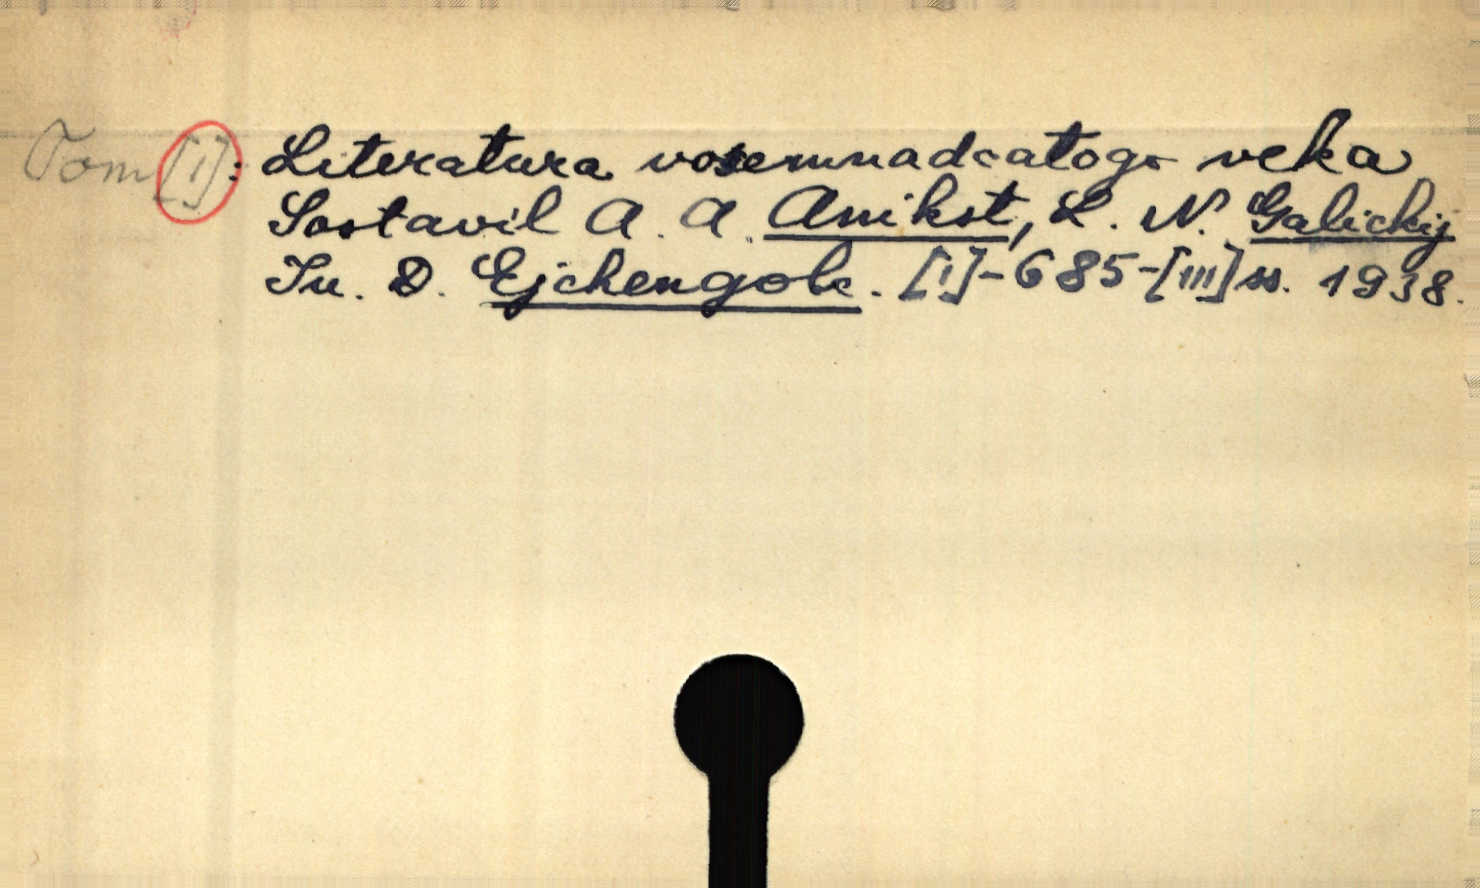 Tom [I]: Literatura vosemnadcatogo veka
Sostavil A. A. Anikst, L. N. Galickij
Iu. D. Ejchengolc. [I]-685-[III] ss. 1938.